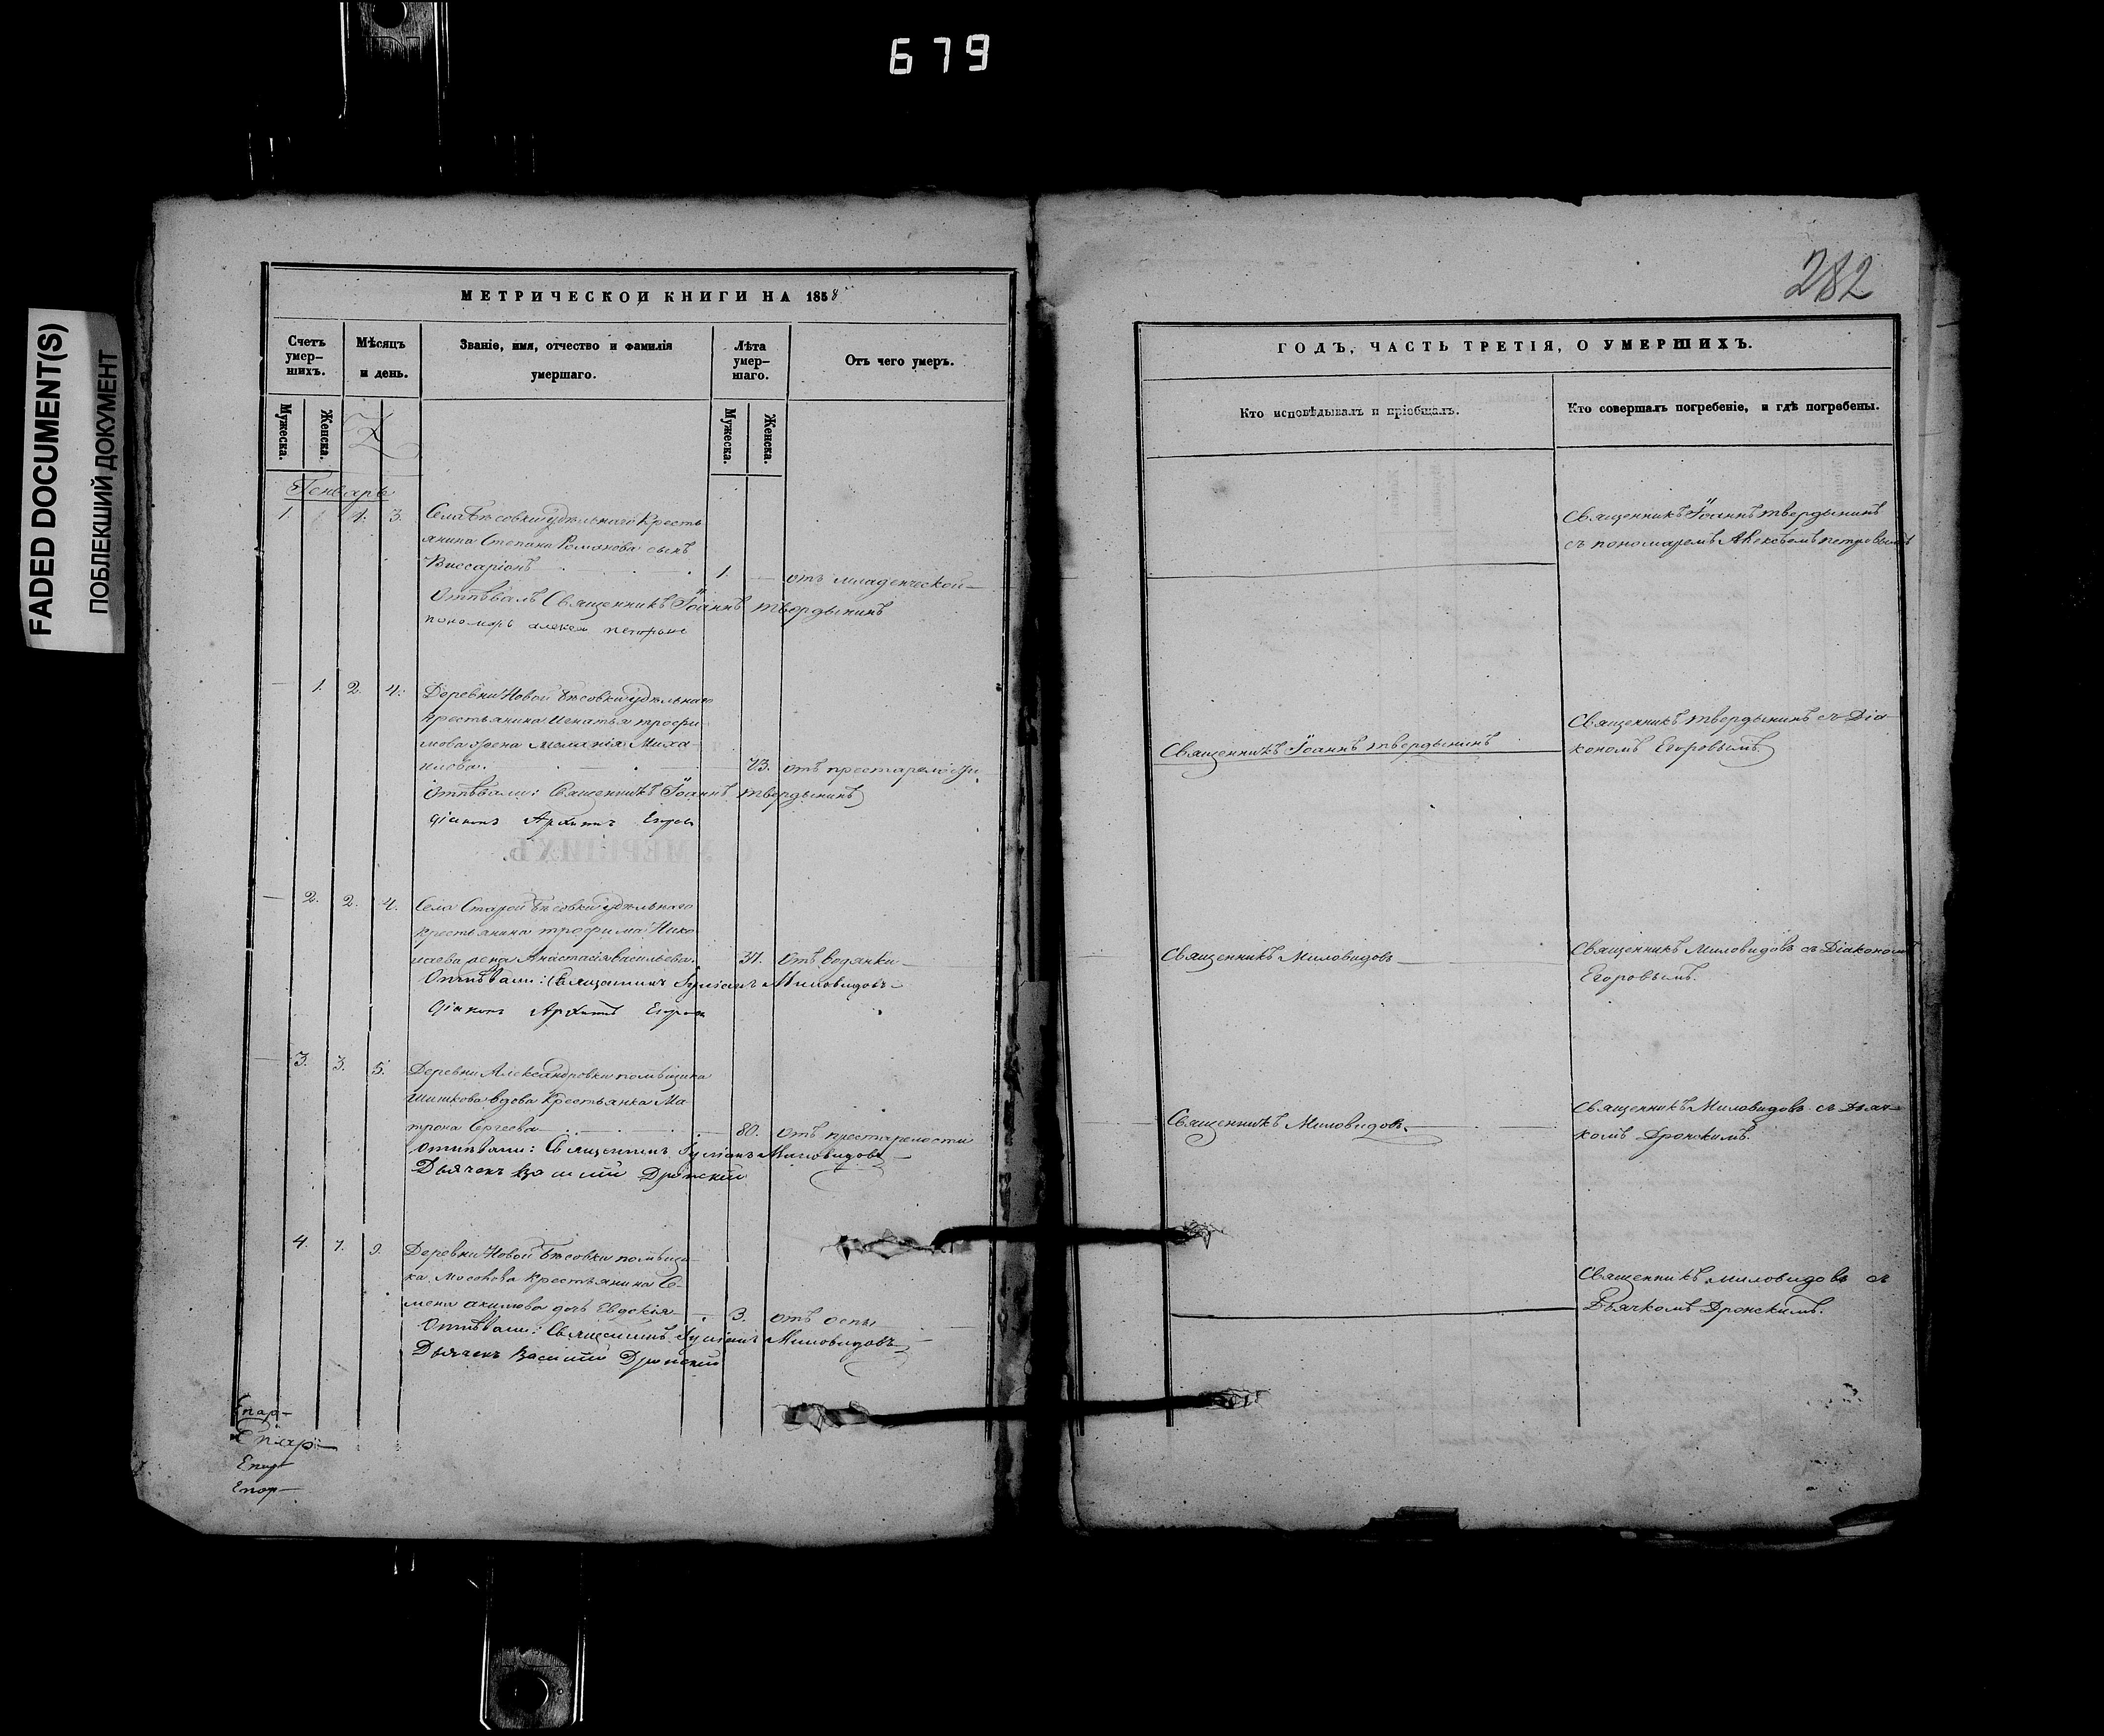 679
FADED DOCUMENT(S)
ПОБЛЕКШИЙ ДОКУМЕНТ
МЕТРИЧЕСКОЙ КНИГИ НА 1858
Счетъ умер-шихъ.
Мѣсяцъ и день.
Званіе, имя, отчество и фамилія умершаго.
Лѣта умер-шаго.
Отъ чего умеръ.
Мужеска.
Женска.
Мужеска.
Женска.
Генварь
1. 1. 3. Села Бѣсовки удѣльнаго Кресть
янина Степана Романова сынъ
Виссаріонъ 1. отъ младенческой
Отпѣвалъ Священникъ Іоаннъ Твердынинъ
пономарь
1. 2. 4. Деревни Новой Бѣсовки удѣльнаго
крестьянина Игнатья трофи
мова жена Меланія Миха
илова. 73. отъ престарелости
Отпѣвали: Священникъ Іоаннъ Твердынинъ
діаконъ Архипъ Егоровъ
2. 2. 4. Села Старой Бѣсовки удѣльнаго
крестьянина трофима Нико
лаева жена Анастасія Васильева. 31. отъ водянки
Отпѣвали: Священникъ Миловидовъ
діаконъ Архипъ Егоровъ
3. 3. 5. Деревни Александровки помѣщика
Шишкова вдова Крестьянка Ма
трона Сергеева 80. отъ престарелости
Отпѣвали: Священникъ Миловидовъ
Дьячекъ Василій Дронскій
4. 7. 9. Деревни Новой Бѣсовки помѣщи
ка Мосолова Крестьянина Се
мена акимова дочь Евдокія 3. отъ оспы
Отпѣвали: Священникъ Миловидовъ
Дьячекъ Василій Дронскій
Епар-
Епар-
Епар-
Епар-
282
ГОДЪ, ЧАСТЬ ТРЕТІЯ, О УМЕРШИХЪ.
Кто исповѣдывалъ и пріобщалъ.
Кто совершалъ погребеніе, и гдѣ погребены.
Священникъ Іоаннъ твердынинъ
съ пономаремъ Алексѣемъ петровымъ
Священникъ Іоаннъ твердынинъ
Священникъ твердынинъ съ Діа
кономъ Егоровымъ
Священникъ Миловидовъ
Священникъ Миловидовъ съ Діакономъ
Егоровымъ.
Священникъ Миловидовъ.
Священникъ Миловидовъ съ Дьяч
комъ Дронскимъ.
Священникъ миловидовъ съ
Дьячкомъ Дронскимъ.